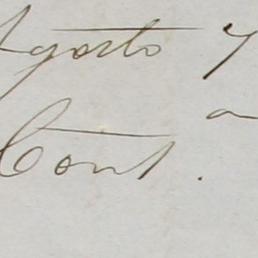 Agosto 7
a
Cont.